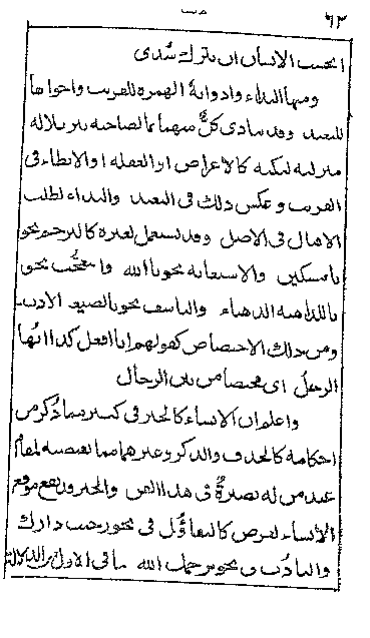 ٦٢
ايحسب الانسان ان يترك سُدى
ومنها النداء وادواته الهمزة للقريب واخواتها
للبعيد وقد ينادى كلٌّ منهما بما لصاحبه بتنزيله
منزلته لنكتة كالاعراض او الغفلة او الابطاء فى
القريب وعكس ذلك فى البعيد والنداء لطلب
الاقبال فى الاصل وقد يستعمل لغيره كالترحم نحو
يا مسكين والاستغاثة نحو يا لله والتعجّب نحو
يا للداهية الدهياء والتأسف نحو يا لضيعة الادب
ومن ذلك الاختصاص كقولهم انا افعل كذا ايّها
الرجلُ اى مختصا من بين الرجال
واعلم ان الانشاء كالخبر فى كثير مما ذُكر من
احكامه كالحذف والذكر وغيرهما مما يقتضيه المقام
عند من له بصيرةٌ فى هذا الفن والخبر قد يقع موقع
الانشاء لغرض كالتفاؤل فى نحو رحب دارك
والتأدّب فى نحو يرحمك الله ما فى الاول من الدلالة